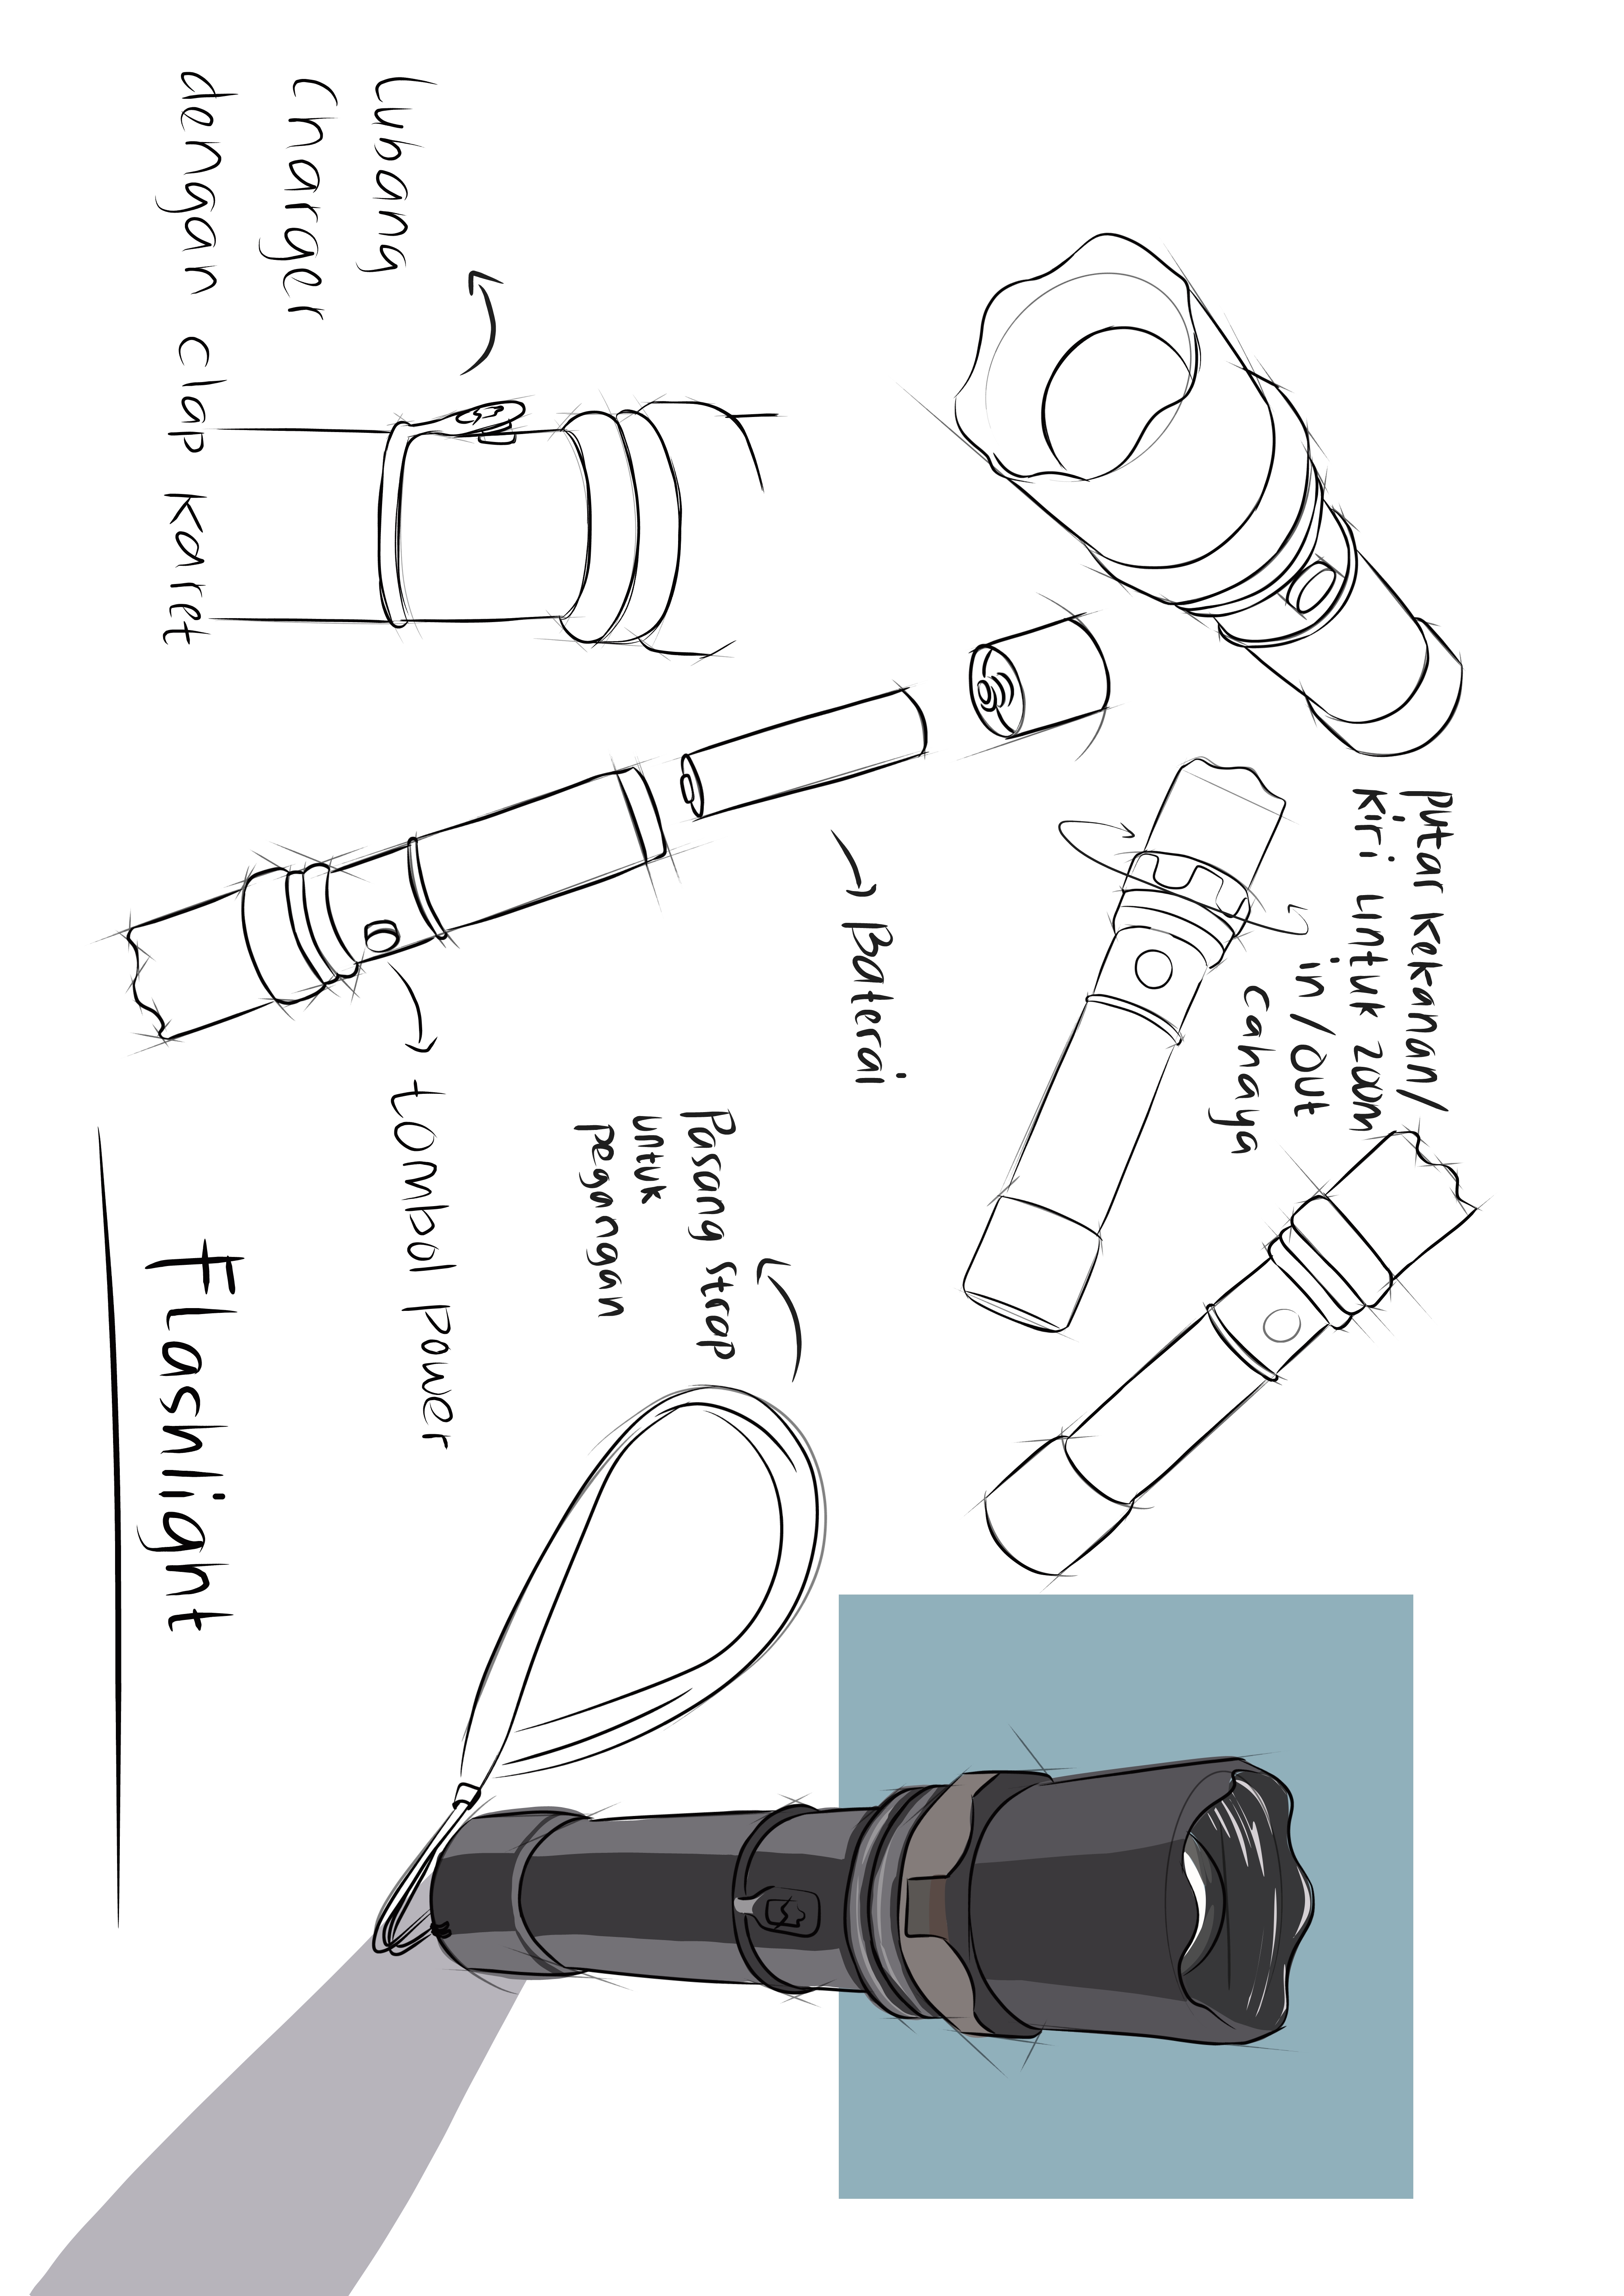 Putar kekanan/
kiri untuk zoom
in/out
cahaya
Baterai
Pasang strap
untuk
pegangan
tombol power
Lubang
Charger
dengan clap karet
Flashlight